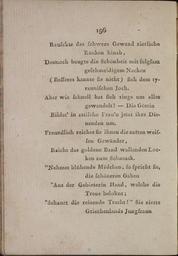 196
Rauschte das schwere Gewand zierliche
Nacken hinab,
Dennoch beugte die Schönheit mit folgsam
geschmeidigem Nacken
(Besseres kannte sie nicht) sich dem ty-
rannischen Joch.
Aber wie schnell hat sich rings um alles
gewandelt? — Die Göttin
Bildet' in zeitliche Frau'n jetzt ihre Die-
nenden um.
Freundlich reichet sie ihnen die zarten weis-
sen Gewänder,
Reicht das goldene Band wallenden Loc-
ken zum Schmuck.
"Nehmen blühende Mädchen, so spricht sie,
die schöneren Gaben
"Aus der Gebieterin Hand, welche die
Treue belohnt;
"Schaut die reizende Tracht!" Sie zierte
Griechenlands Jungfraun